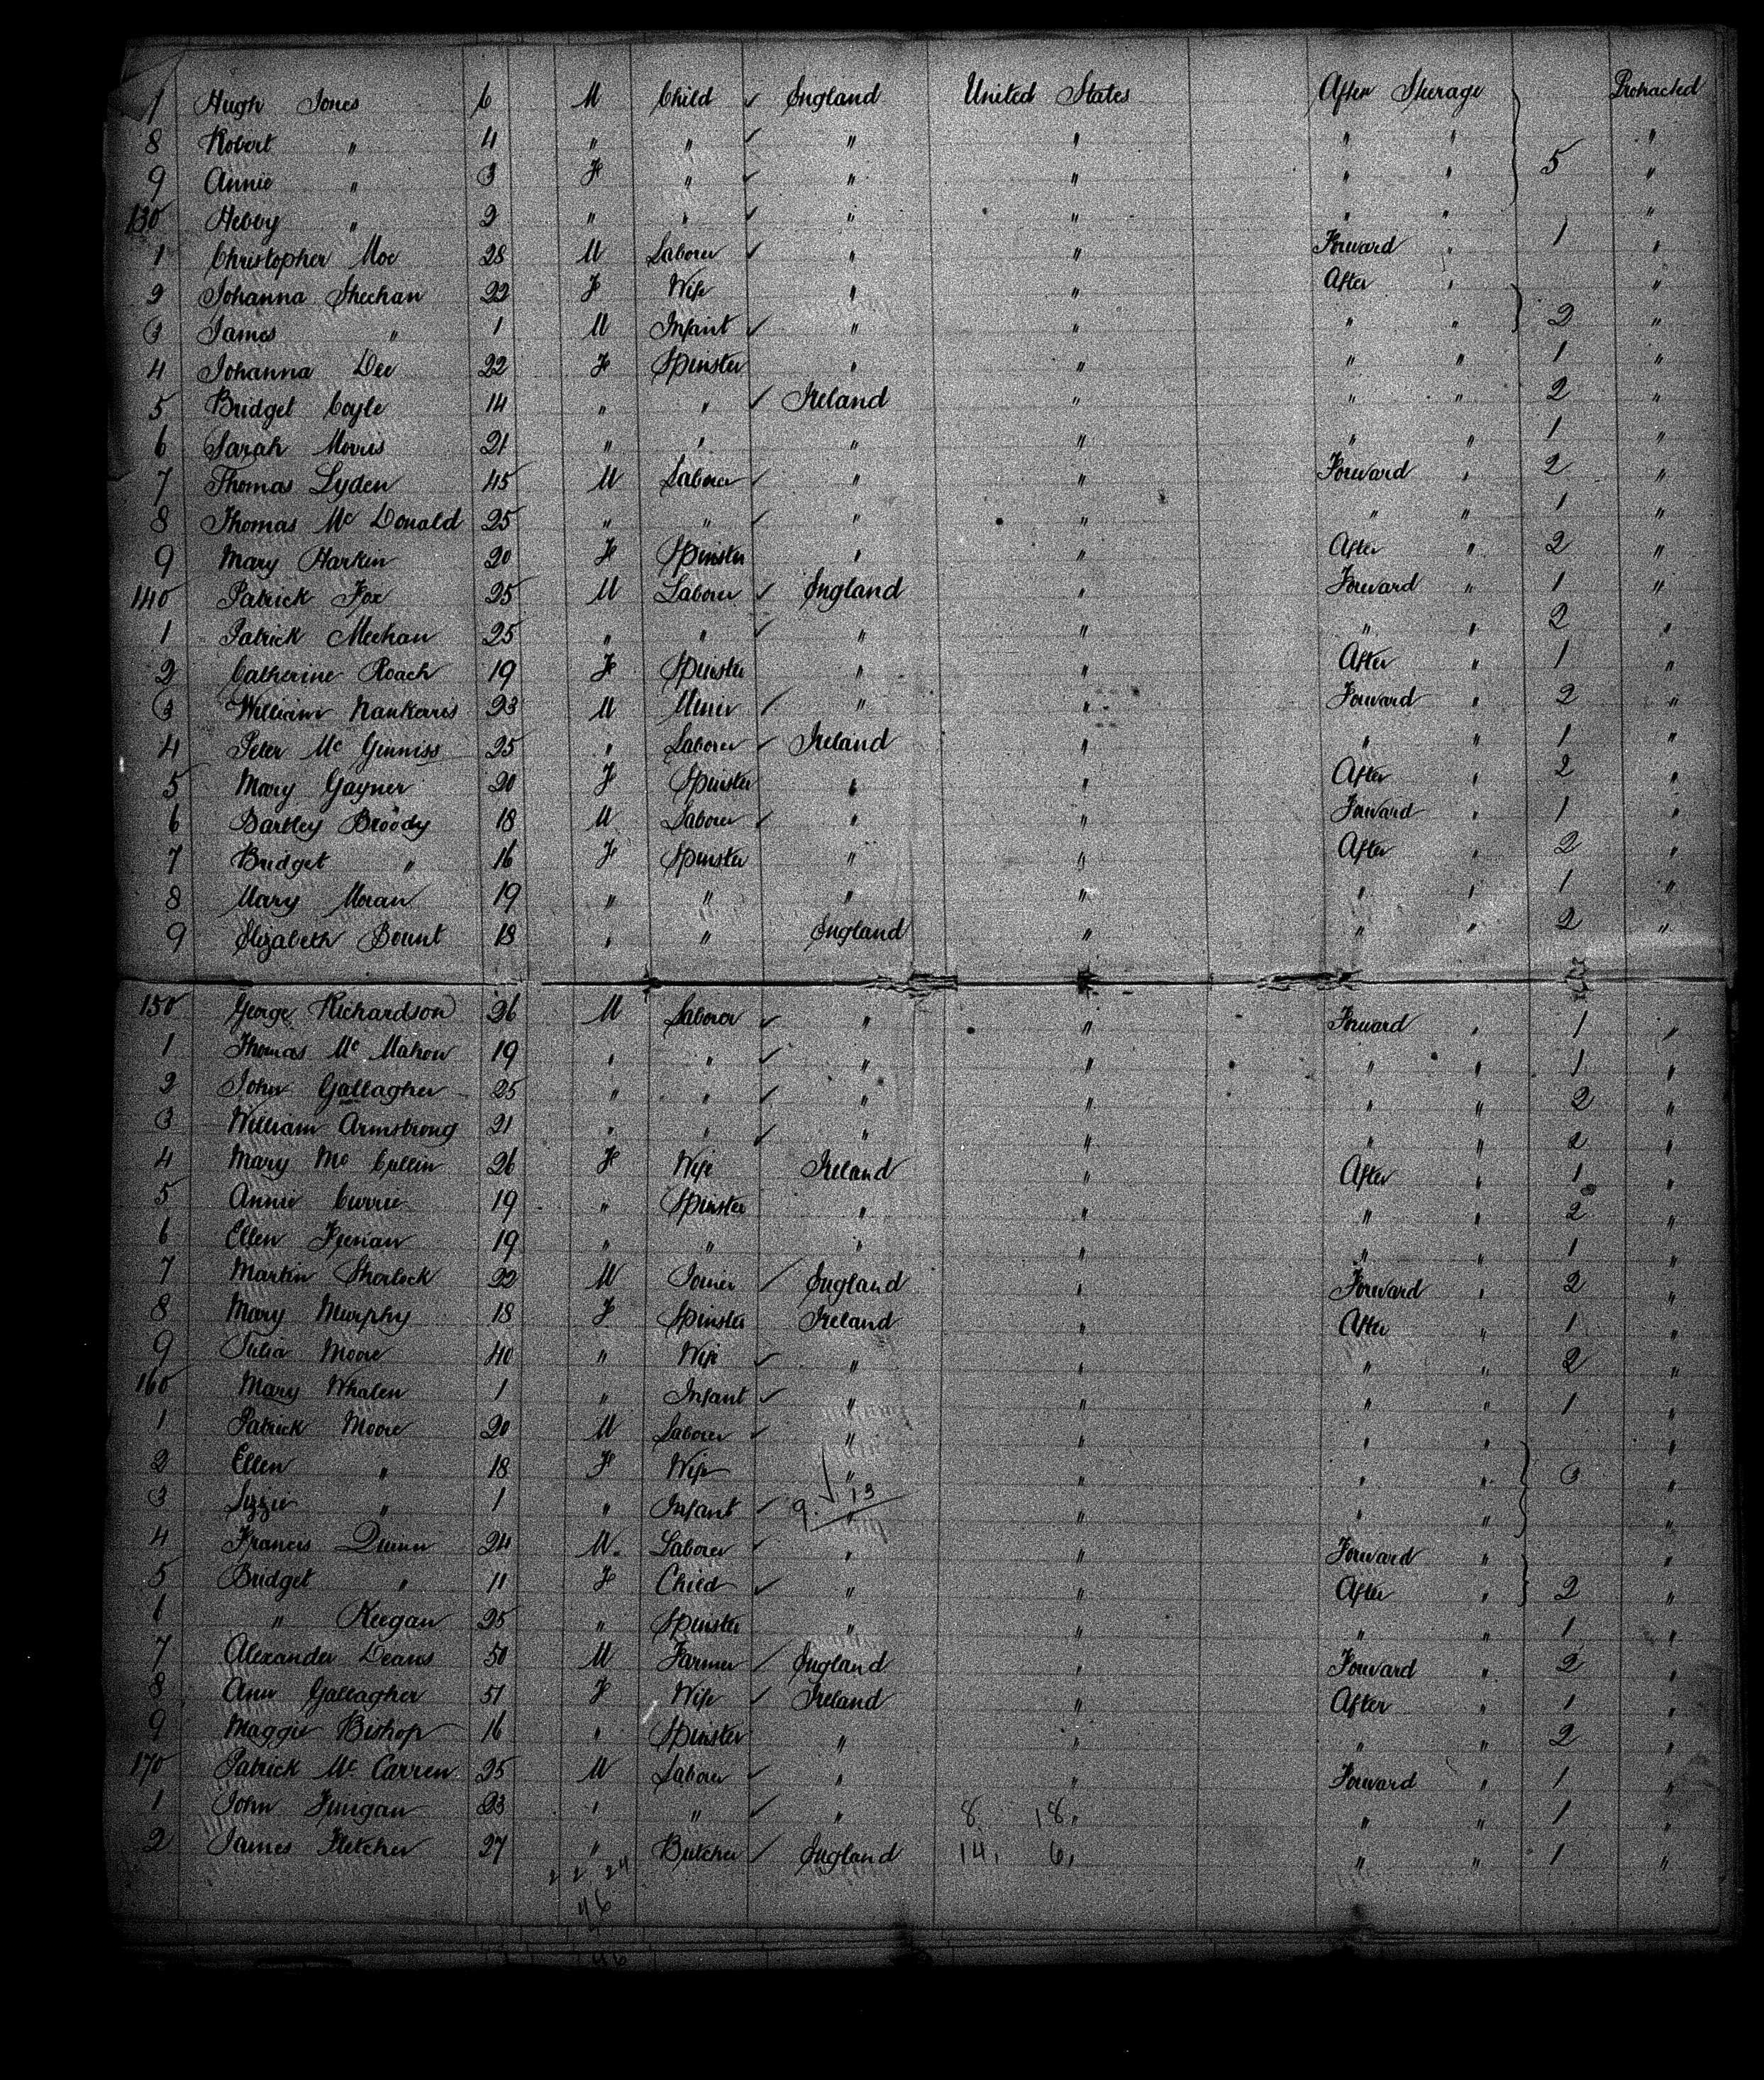 7 Hugh Jones 6 M Child ✓ England United States After Steerage Protracted
8 Robert " 4 " " ✓ " " " " "
9 Annie " 3 F " ✓ " " " " 5 "
130 " 2 " " ✓ " " " " "
1 Christopher Moe 28 M Laborer ✓ " " Forward " 1 "
2 Johanna Sheehan 22 F Wife " " After " "
3 James " 1 M Infant ✓ " " " " 2 "
4 Johanna Dee 22 F Spinster " " " " 1 "
5 Bridget Coyle 14 " " ✓ Ireland " " " 2 "
6 Sarah Morris 21 " " " " " " 1 "
7 Thomas Lyden 45 M Laborer ✓ " " Forward " 2 "
8 Thomas Mc Donald 25 " " ✓ " " " " 1 "
9 Mary Harkin 20 F Spinster " " After " 2 "
140 Patrick Fox 25 M Laborer ✓ England " Forward " 1 "
1 Patrick Meehan 25 " " ✓ " " " " 2 "
2 Catherine Roach 19 F Spinster " " After " 1 "
3 William Nankarris 23 M Miner ✓ " " Forward " 2 "
4 Peter Mc Ginniss 25 " Laborer ✓ Ireland " " " 1 "
5 Mary Gayner 20 F Spinster " " After " 2 "
6 Bartley Broody 18 M Laborer ✓ " " Forward " 1 "
7 Bridget " 16 F Spinster " " After " 2 "
8 Mary Moran 19 " " " " " " 1 "
9 Elizabeth Bount 18 " " England " " " 2 "
150 George Richardson 26 M Laborer ✓ " " Forward " 1 "
1 Thomas Mc Mahon 19 " " ✓ " " " " 1 "
2 John Gallagher 25 " " ✓ " " " " 2 "
3 William Armstrong 21 " " ✓ " " " " 2 "
4 Mary Mc Cullin 26 F Wife Ireland " After " 1 "
5 Annie Currie 19 " Spinster " " " " 2 "
6 Ellen 19 " " " " " " 1 "
7 Martin Shorlock 22 M Joiner ✓ England " Forward " 2 "
8 Mary Murphy 18 F Spinster Ireland " After " 1 "
9 Julia Moore 40 " Wife ✓ " " " " 2 "
160 Mary Whalen 1 " Infant ✓ " " " " 1 "
1 Patrick Moore 20 M Laborer ✓ " " " " "
2 Ellen " 18 F Wife " " " " 3 "
3 Lizzie " 1 " Infant ✓ 9 13 " " " " "
4 Francis Quinn 24 M Laborer ✓ " " Forward " "
5 Bridget " 11 F Child ✓ " " After " 2 "
6 " Keegan 25 " Spinster " " " " 1 "
7 Alexander Deans 50 M Farmer ✓ England " Forward " 2 "
8 Ann Gallagher 51 F Wife ✓ Ireland " After " 1 "
9 Maggie Bishop 16 " Spinster " " " " 2 "
170 Patrick Mc Carren 25 M Laborer ✓ " " Forward " 1 "
1 John Finigan 23 " " ✓ " 8 18 " " 1 "
2 James Fletcher 27 " Butcher ✓ England 14 6 " " 1 "
2 2 24
46
46